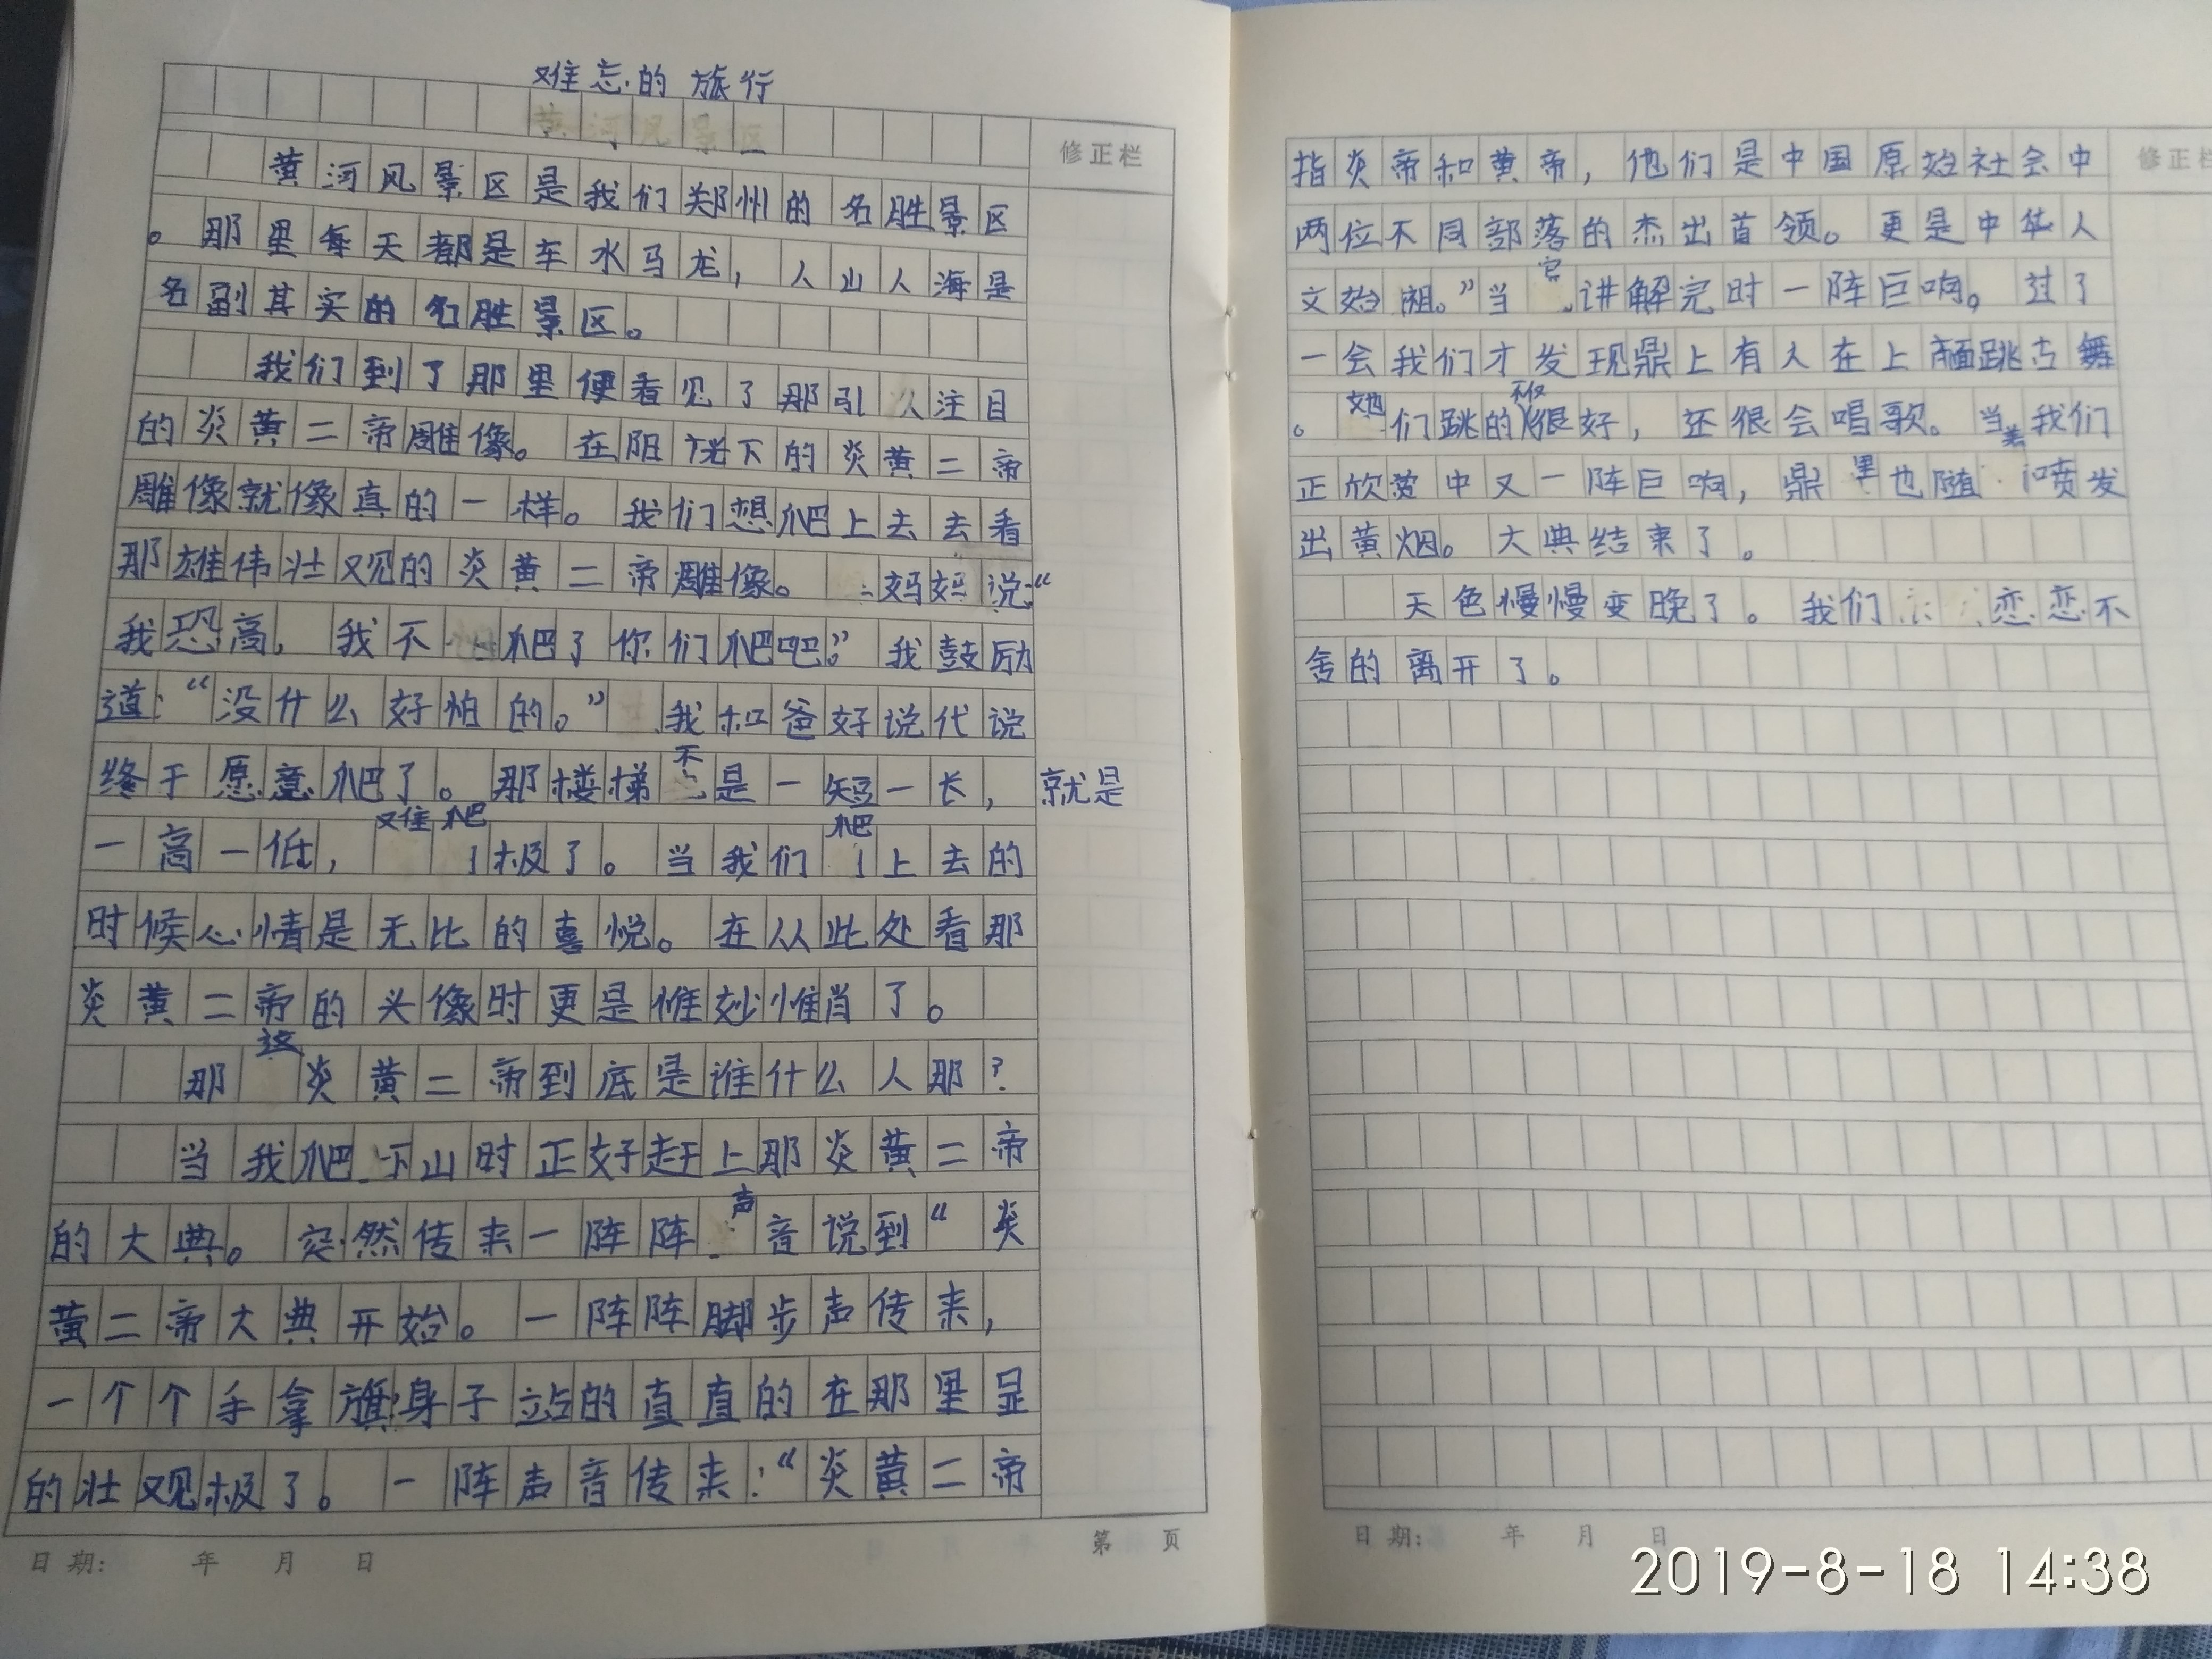 难忘的旅行
黄河风景区
修正栏
黄河风景区是我们郑州的名胜景区
。那里每天都是车水马龙，人山人海是
名副其实的名胜景区。
我们到了那里便看见了那引人注目
的炎黄二帝雕像。在阳光下的炎黄二帝
雕像就像真的一样。我们想爬上去去看
那雄伟壮观的炎黄二帝雕像。妈妈说:“
我恐高，我不爬了你们爬吧。”我鼓励
道:“没什么好怕的。”我和爸好说代说
终于愿意爬了。那楼梯不是一短一长，就是
一高一低，难爬极了。当我们爬上去的
时候心情是无比的喜悦。在从此处看那
炎黄二帝的头像时更是惟妙惟肖了。
那这炎黄二帝到底是谁什么人那?
当我爬下山时正好赶上那炎黄二帝
的大典。突然传来一阵阵声音说到“炎
黄二帝大典开始。一阵阵脚步声传来，
一个个手拿旗身子站的直直的在那里显
的壮观极了。一阵声音传来:“炎黄二帝
日期: 年 月 日
第 页
修正栏
指炎帝和黄帝，他们是中国原始社会中
两位不同部落的杰出首领。更是中华人
文始祖。”当官讲解完时一阵巨响。过了
一会我们才发现鼎上有人在上面跳古舞
。她们跳的不仅很好，还很会唱歌。当我们
正欣赏中又一阵巨响，鼎里也随着喷发
出黄烟。大典结束了。
天色慢慢变晚了。我们恋恋不
舍的离开了。
日期: 年 月 日
2019-8-18 14:38